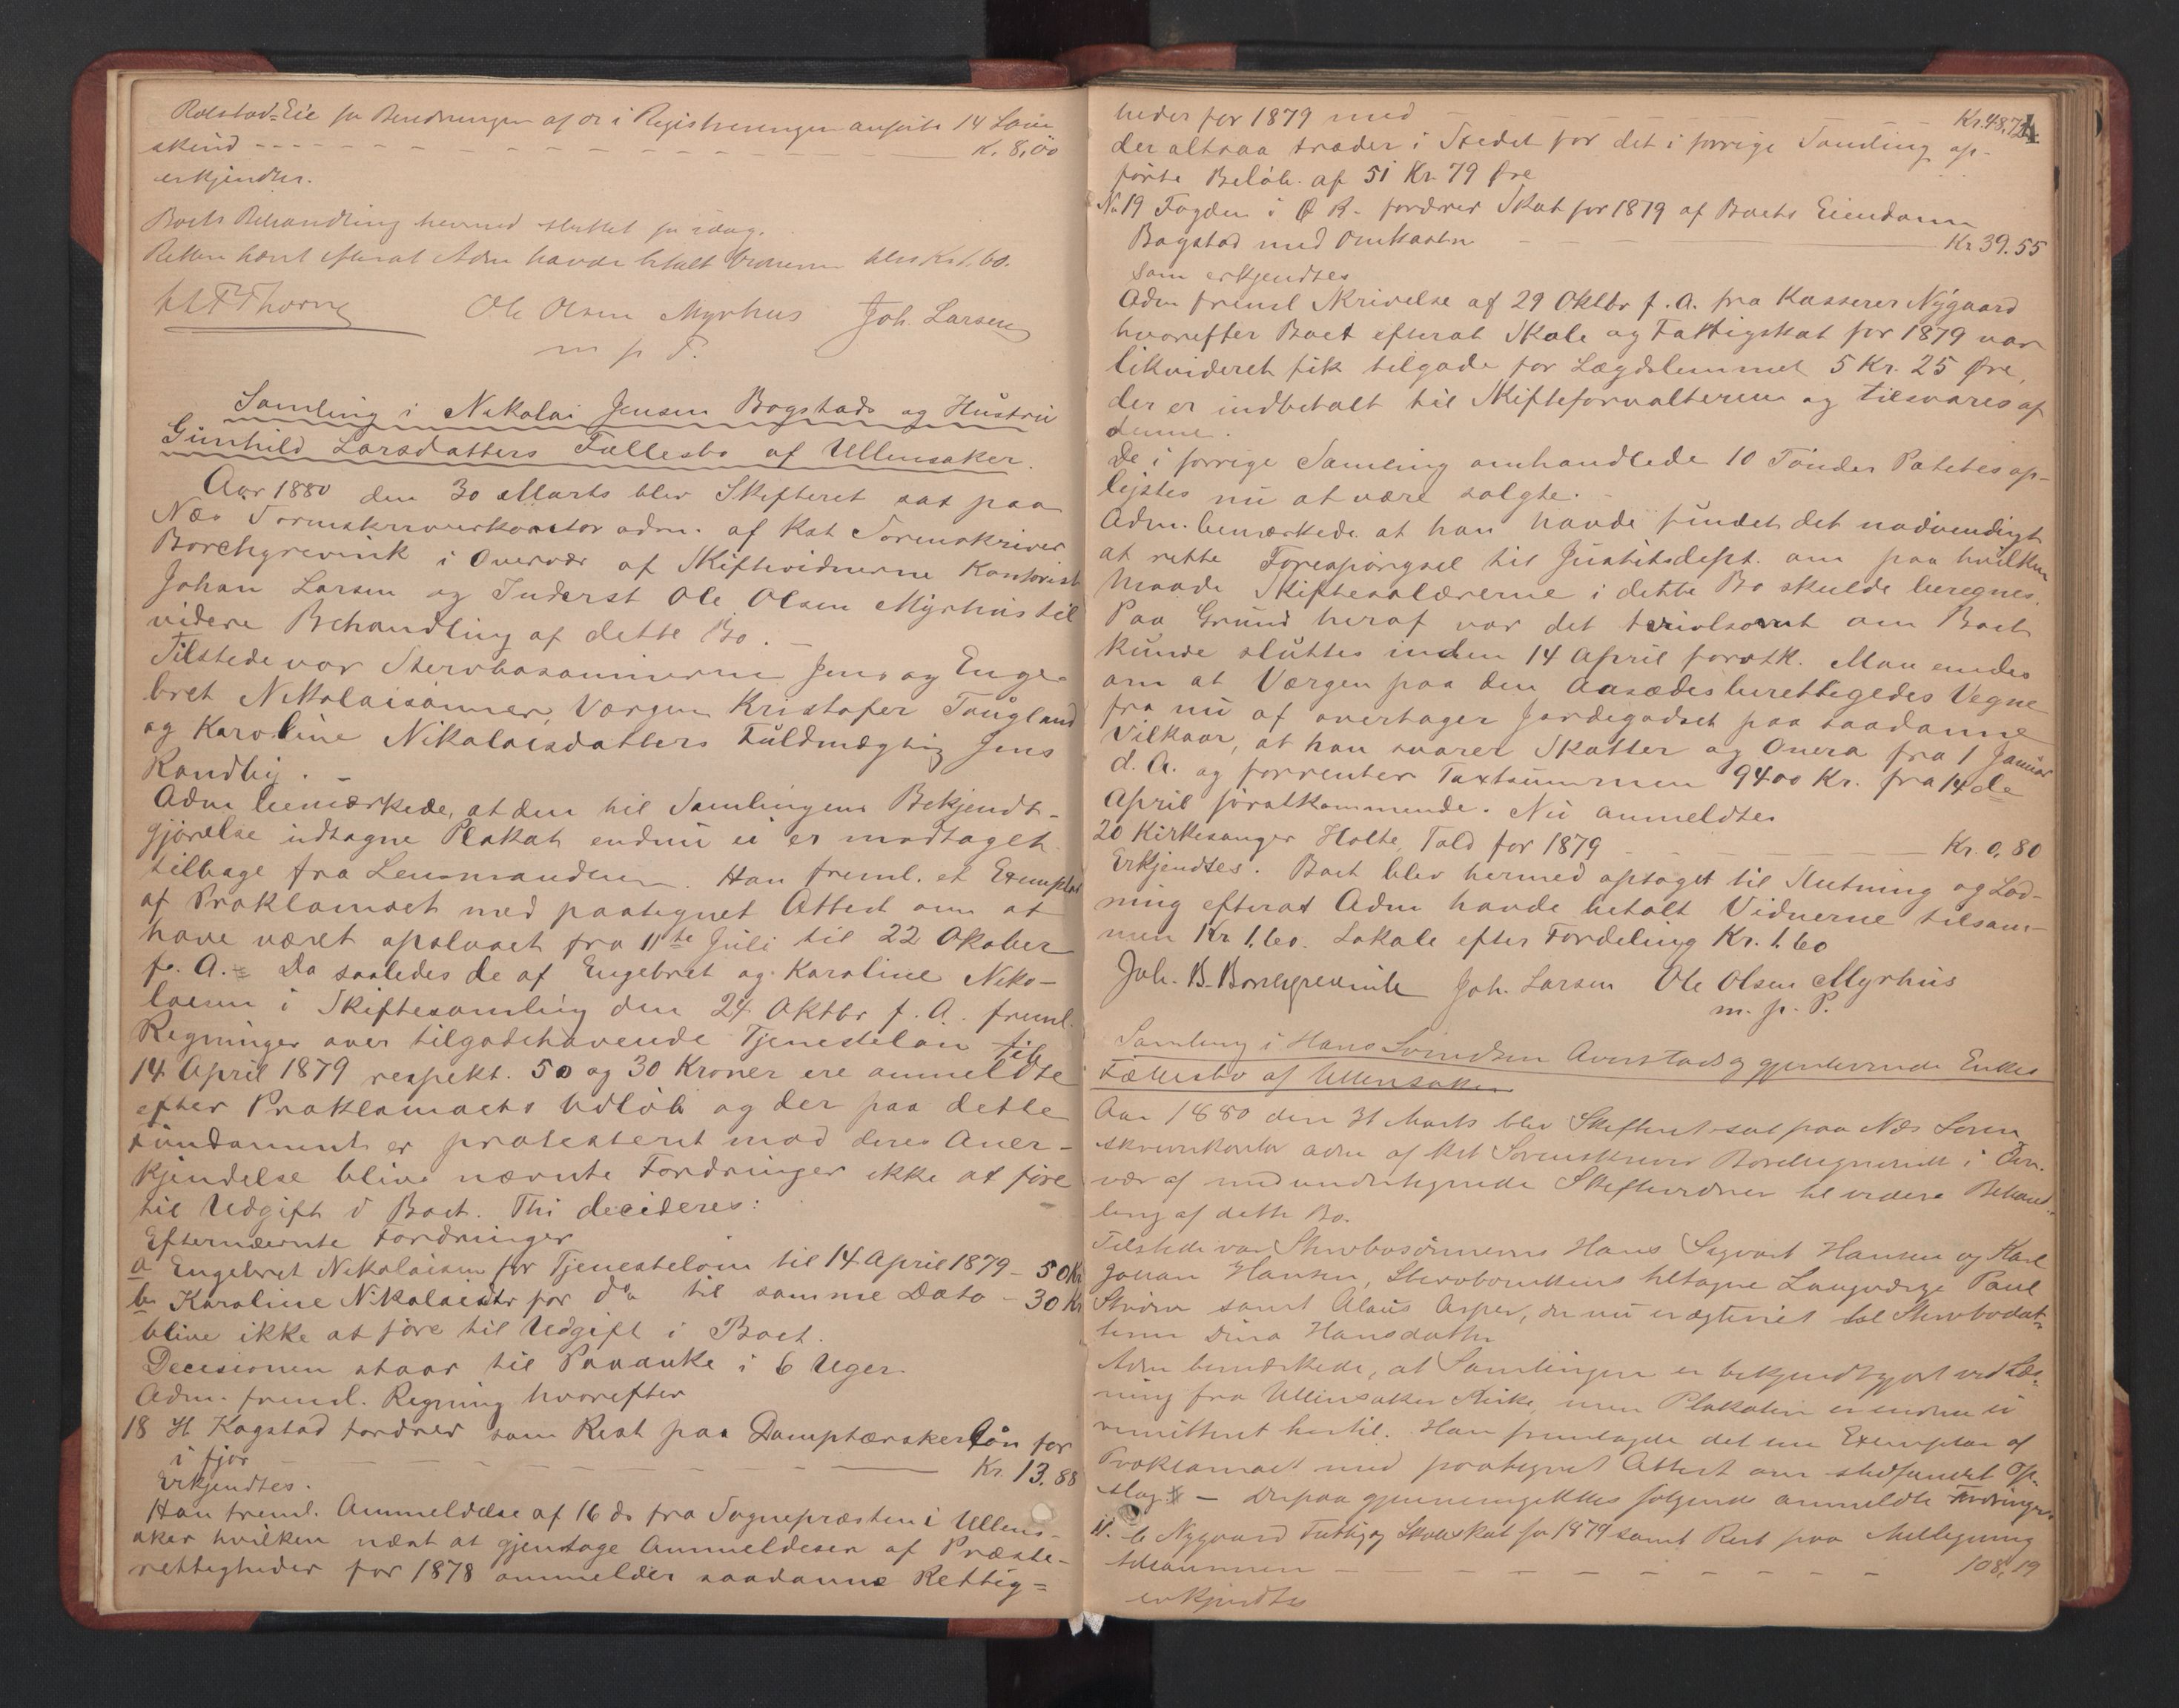 Rolstad-Eie for Beredningen af de i Registreringen anførte 14 
skind - - - Kr. 8,00
erkjendtes.
Boets Behandling hermed sluttet for idag.
Retten hævet efterat Adm havde betalt Vidnerne Kr 1.60.
Thorne Ole Olsen Myrhus Joh. Larsen
m p P.
Samling i Nikolai Jensen Bogstads og Hustru
Gunhild Larsdatters Fællesbo af Ullensaker.
Aar 1880 den 30 Marts blev Skifteret sat paa
Næs Sorenskriverkontor adm. af Kst Sorenskriver
Borchgrevink i Overvær af Skiftevidnerne Kontorist
Johan Larsen og Inderst Ole Olsen Myrhus til
videre Behandling af dette Bo. -
Tilstede var Stervbosønnerne Jens og Enge-
bret Nikolaisønner, Værgen Kristofer Taugland
og Karoline Nikolaisdatters Fuldmægtig Jens
Randby. -
Adm bemærkede, at den til Samlingens Bekjendt-
gjørelse udtagne Plakat endnu ei er modtaget
tilbage fra Lensmanden. Han freml. et Exemplar
af Proklamaet med paategnet Attest om at
have været opslaaet fra 11te Juli til 22 Oktober
f. A. - Da saaledes de af Engebret og Karoline Niko-
laisen i Skiftesamling den 24 Oktbr f. A. freml.
Regninger over tilgodehavende Tjenesteløn til
14 April 1879 respekt. 50 og 30 Kroner ere anmeldte
efter Proklamaets Udløb og der paa dette
Fundament er protesteret mod deres Aner-
kjendelse blive nævnte Fordringer ikke at føre
til Udgift i Boet. Thi decideres:
Efternævnte Fordringer
a Engebret Nikolaisen for Tjenesteløn til 14 April 1879 - 50 Kr
b Karoline Nikolaisdtr for do til samme Dato - 30 Kr
blive ikke at føre til Udgift i Boet.
Decisionen staar til Paaanke i 6 Uger.
Adm. freml. Regning hvorefter
18 H Kogstad fordrer som Rest paa Damptærskerløn for
i fjor - - - Kr. 13.88
Erkjendtes.
Han freml. Anmeldelse af 16 ds fra Sognepræsten i Ullens-
aker hvilken næst at gjentage Anmeldelsen af Præste-
rettigheder for 1878 anmelder saadanne Rettig-
heder for 1879 med - - - Kr. 48,7
4
der altsaa træder i Stedet for det i forrige Samling op-
førte Beløb af 51 Kr. 79 Øre
No 19 Fogden i Ø R. fordrer Skat for 1879 af Boets Eiendom
Bogstad med Omkostn - - - Kr 39.55
som erkjendtes
Adm freml Skrivelse af 29 Oktbr f. A. fra Kasserer Nygaard
hvorefter Boet efterat Skole og Fattigskat for 1879 var
likvideret fik tilgode for Lægdslemmet 5 Kr. 25 Øre,
der er indbetalt til Skifteforvalteren og tilsvares af
denne.
De i forrige Samling omhandlede 10 Tønder Potetes op-
lystes nu at være solgte. -
Adm. bemærkede at han havde fundet det nødvendigt
at rette Forespørgsel til Justitsdept. om paa hvilken
Maade Skiftesalærerne i dette Bo skulde beregnes.
Paa Grund heraf var det tvivlsomt om Boet
kunde sluttes inden 14 April førstk. Man enedes
om at Værgen paa den Aasædesberettigedes Vegne
fra nu af overtager Jordegodset paa saadanne
Vilkaar, at han svarer Skatter og Onera fra 1 Januar
d. A. og forrenter Taxtsummen 9400 Kr. fra 14de
April førstkommende. Nu anmeldtes
20 Kirkesanger Holte, Told for 1879 - - - Kr. 0,80
Erkjendtes. Boet blev hermed optaget til Slutning og Lod-
ning efterat Adm havde betalt Vidnerne tilsam-
men Kr 1.60. Lokale efter Fordeling Kr. 1.60
Joh. B. Borchgrevink Joh. Larsen Ole Olsen Myrhus
m. p. P.
Samling i Hans Svendsen Averstads og gjenlevende Enkes
Fællesbo af Ullensaker
Aar 1880 den 31 Marts blev Skifteret sat paa Næs Soren
skriverkontor adm af Kst Sorenskriver Borchgrevink i Over-
vær af medundertegnede Skiftevidner til videre Behand-
ling af dette Bo.
Tilstede var Stervbosønnerne Hans Sigvart Hansen og Karl
Johan Hansen, Stervboenkens tiltagne Laugværge Paul
Strøm samt Olaus Asper, der nu er ægteviet til Stervbodat-
teren Dina Hansdatter
Adm bemærkede, at Samlingen er bekjendtgjort ved Læs-
ning fra Ullensaker Kirke, men Plakaten er endnu ei
remitteret hertil. Han fremlagde det ene Exemplar af
Proklamaet med paategnet Attest om stedfundet Op-
slag - Derpaa gjennemgikkes følgende anmeldte Fordringer.
11. C Nygaard Fattig og Skoleskat for 1879 samt Rest paa Mellegning
- - - 108,19
erkjendtes